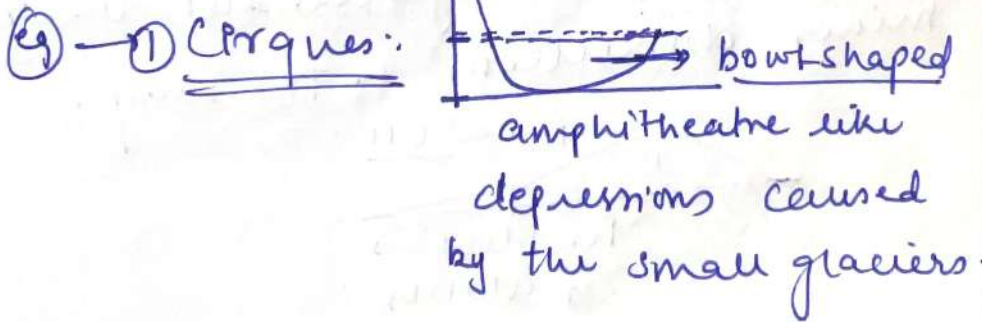 eg → ① Cirques: → bowl-shaped
amphitheatre like
depressions caused
by the small glaciers.